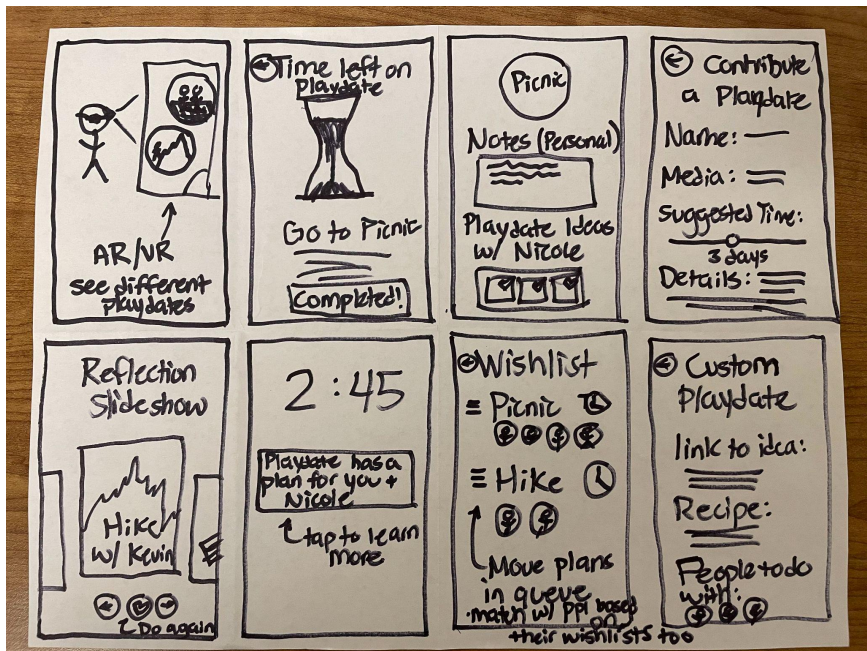 AR/VR
see different
playdates
Time left on
Playdate
Go to Picnic
Completed!
Picnic
Notes (Personal)
Playdate Ideas
w/ Nicole
Contribute
a Playdate
Name:
Media:
Suggested Time:
3 days
Details:
Reflection
Slideshow
Hike
w/ Kevin
Do again
2:45
Playdate has a
plan for you +
Nicole
tap to learn
more
Wishlist
Picnic
Hike
Move plans
in queue
• match w/ ppl based
on
their wishlists too
Custom
Playdate
link to idea:
Recipe:
People to do
with: